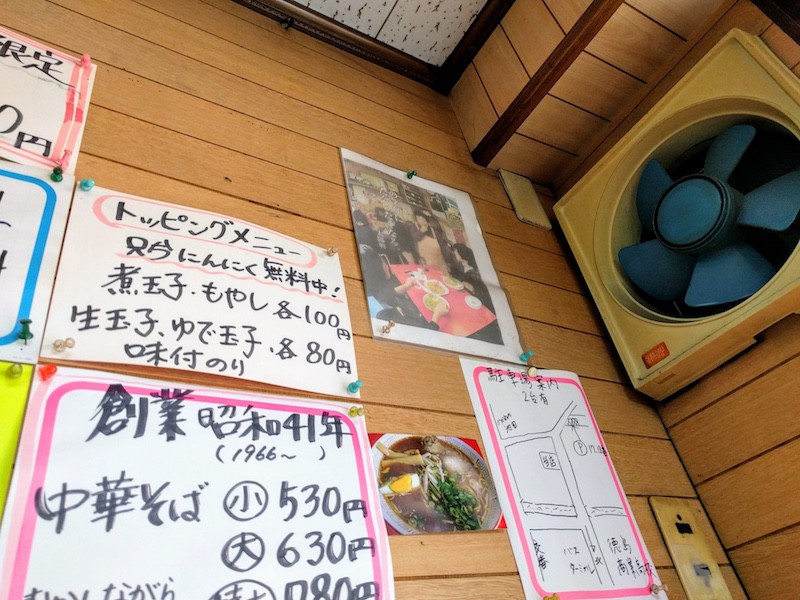 限定
0円
トッピングメニュー
只今にんにく無料中!
煮玉子・もやし各100円
生玉子、ゆで玉子・各80円
味付のり
創業昭和41年
(1966~ )
中華そば 小 530円
大 630円
780円
駐車場案内
2台有
当店
P
バス
ターミナル
徳島
商業高校